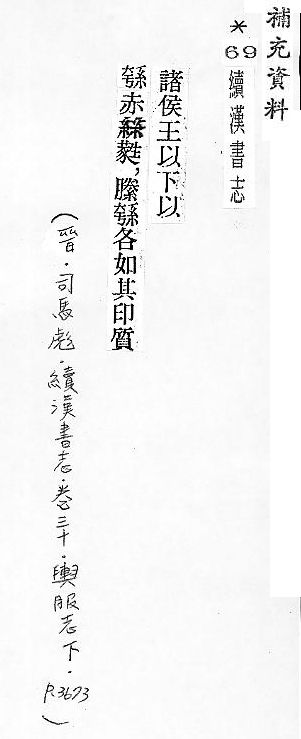 補充資料
＊69 續漢書志
諸侯王以下以
綔赤絲蕤，縢綔各如其印質
（晉．司馬彪．續漢書志．卷三十．輿服志下．P.3673）